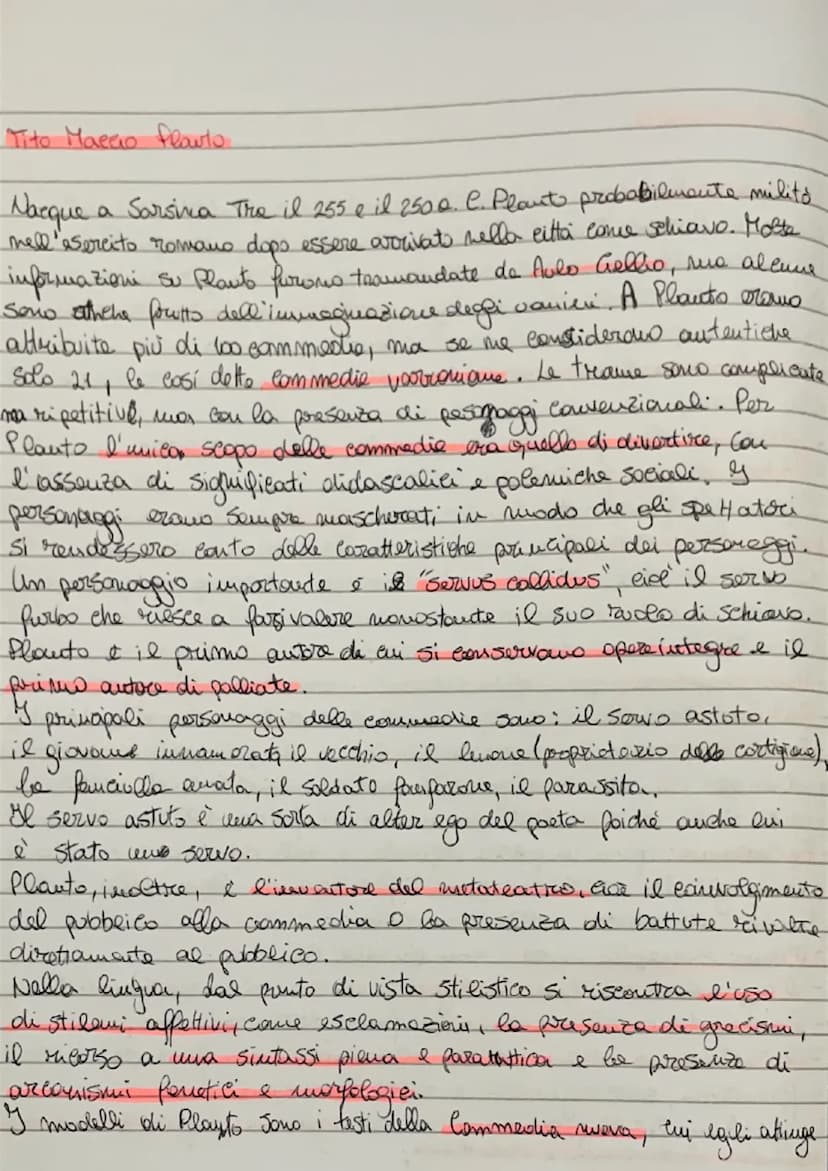 Tito Maccio Plauto
Nacque a Sarsina Tra il 255 e il 250 a. C. Plauto probabilmente militò
nell'esercito romano dopo essere arrivato nella città come schiavo. Molte
informazioni su Plauto furono tramandate da Aulo Gellio, ma alcune
sono anche frutto dell'immaginazione degli uomini. A Plauto erano
attribuite più di 100 commedie, ma se ne considerano autentiche
solo 21, le così dette commedie varroniane. Le trame sono complicate
ma ripetitive, ma con la presenza di pesonaggi convenzionali. Per
Plauto l'unico scopo delle commedie era quello di divertire, con
l'assenza di significati didascalici e polemiche sociali. I
personaggi erano sempre mascherati in modo che gli spettatori
si rendessero conto delle caratteristiche principali dei personaggi.
Un personaggio importante è il "servus callidus", cioè il servo
furbo che riesce a farsi valere nonostante il suo ruolo di schiavo.
Plauto è il primo autore di cui si conservano opere integre e il
primo autore di palliate.
I principali personaggi delle commedie sono: il servo astuto,
il giovane innamorato, il vecchio, il lenone (proprietario delle cortigiane),
la fanciulla amata, il soldato fanfarone, il parassita.
Il servo astuto è una sorta di alter ego del poeta poiché anche lui
è stato un servo.
Plauto, inoltre, è l'inventore del metateatro, cioè il coinvolgimento
del pubblico alla commedia o la presenza di battute rivolte
direttamente al pubblico.
Nella lingua, dal punto di vista stilistico si riscontra l'uso
di stilemi affettivi, come esclamazioni, la presenza di grecismi,
il ricorso a una sintassi piena e paratattica e la presenza di
arcaismi fonetici e morfologici.
I modelli di Plauto sono i testi della Commedia nuova, cui egli attinge